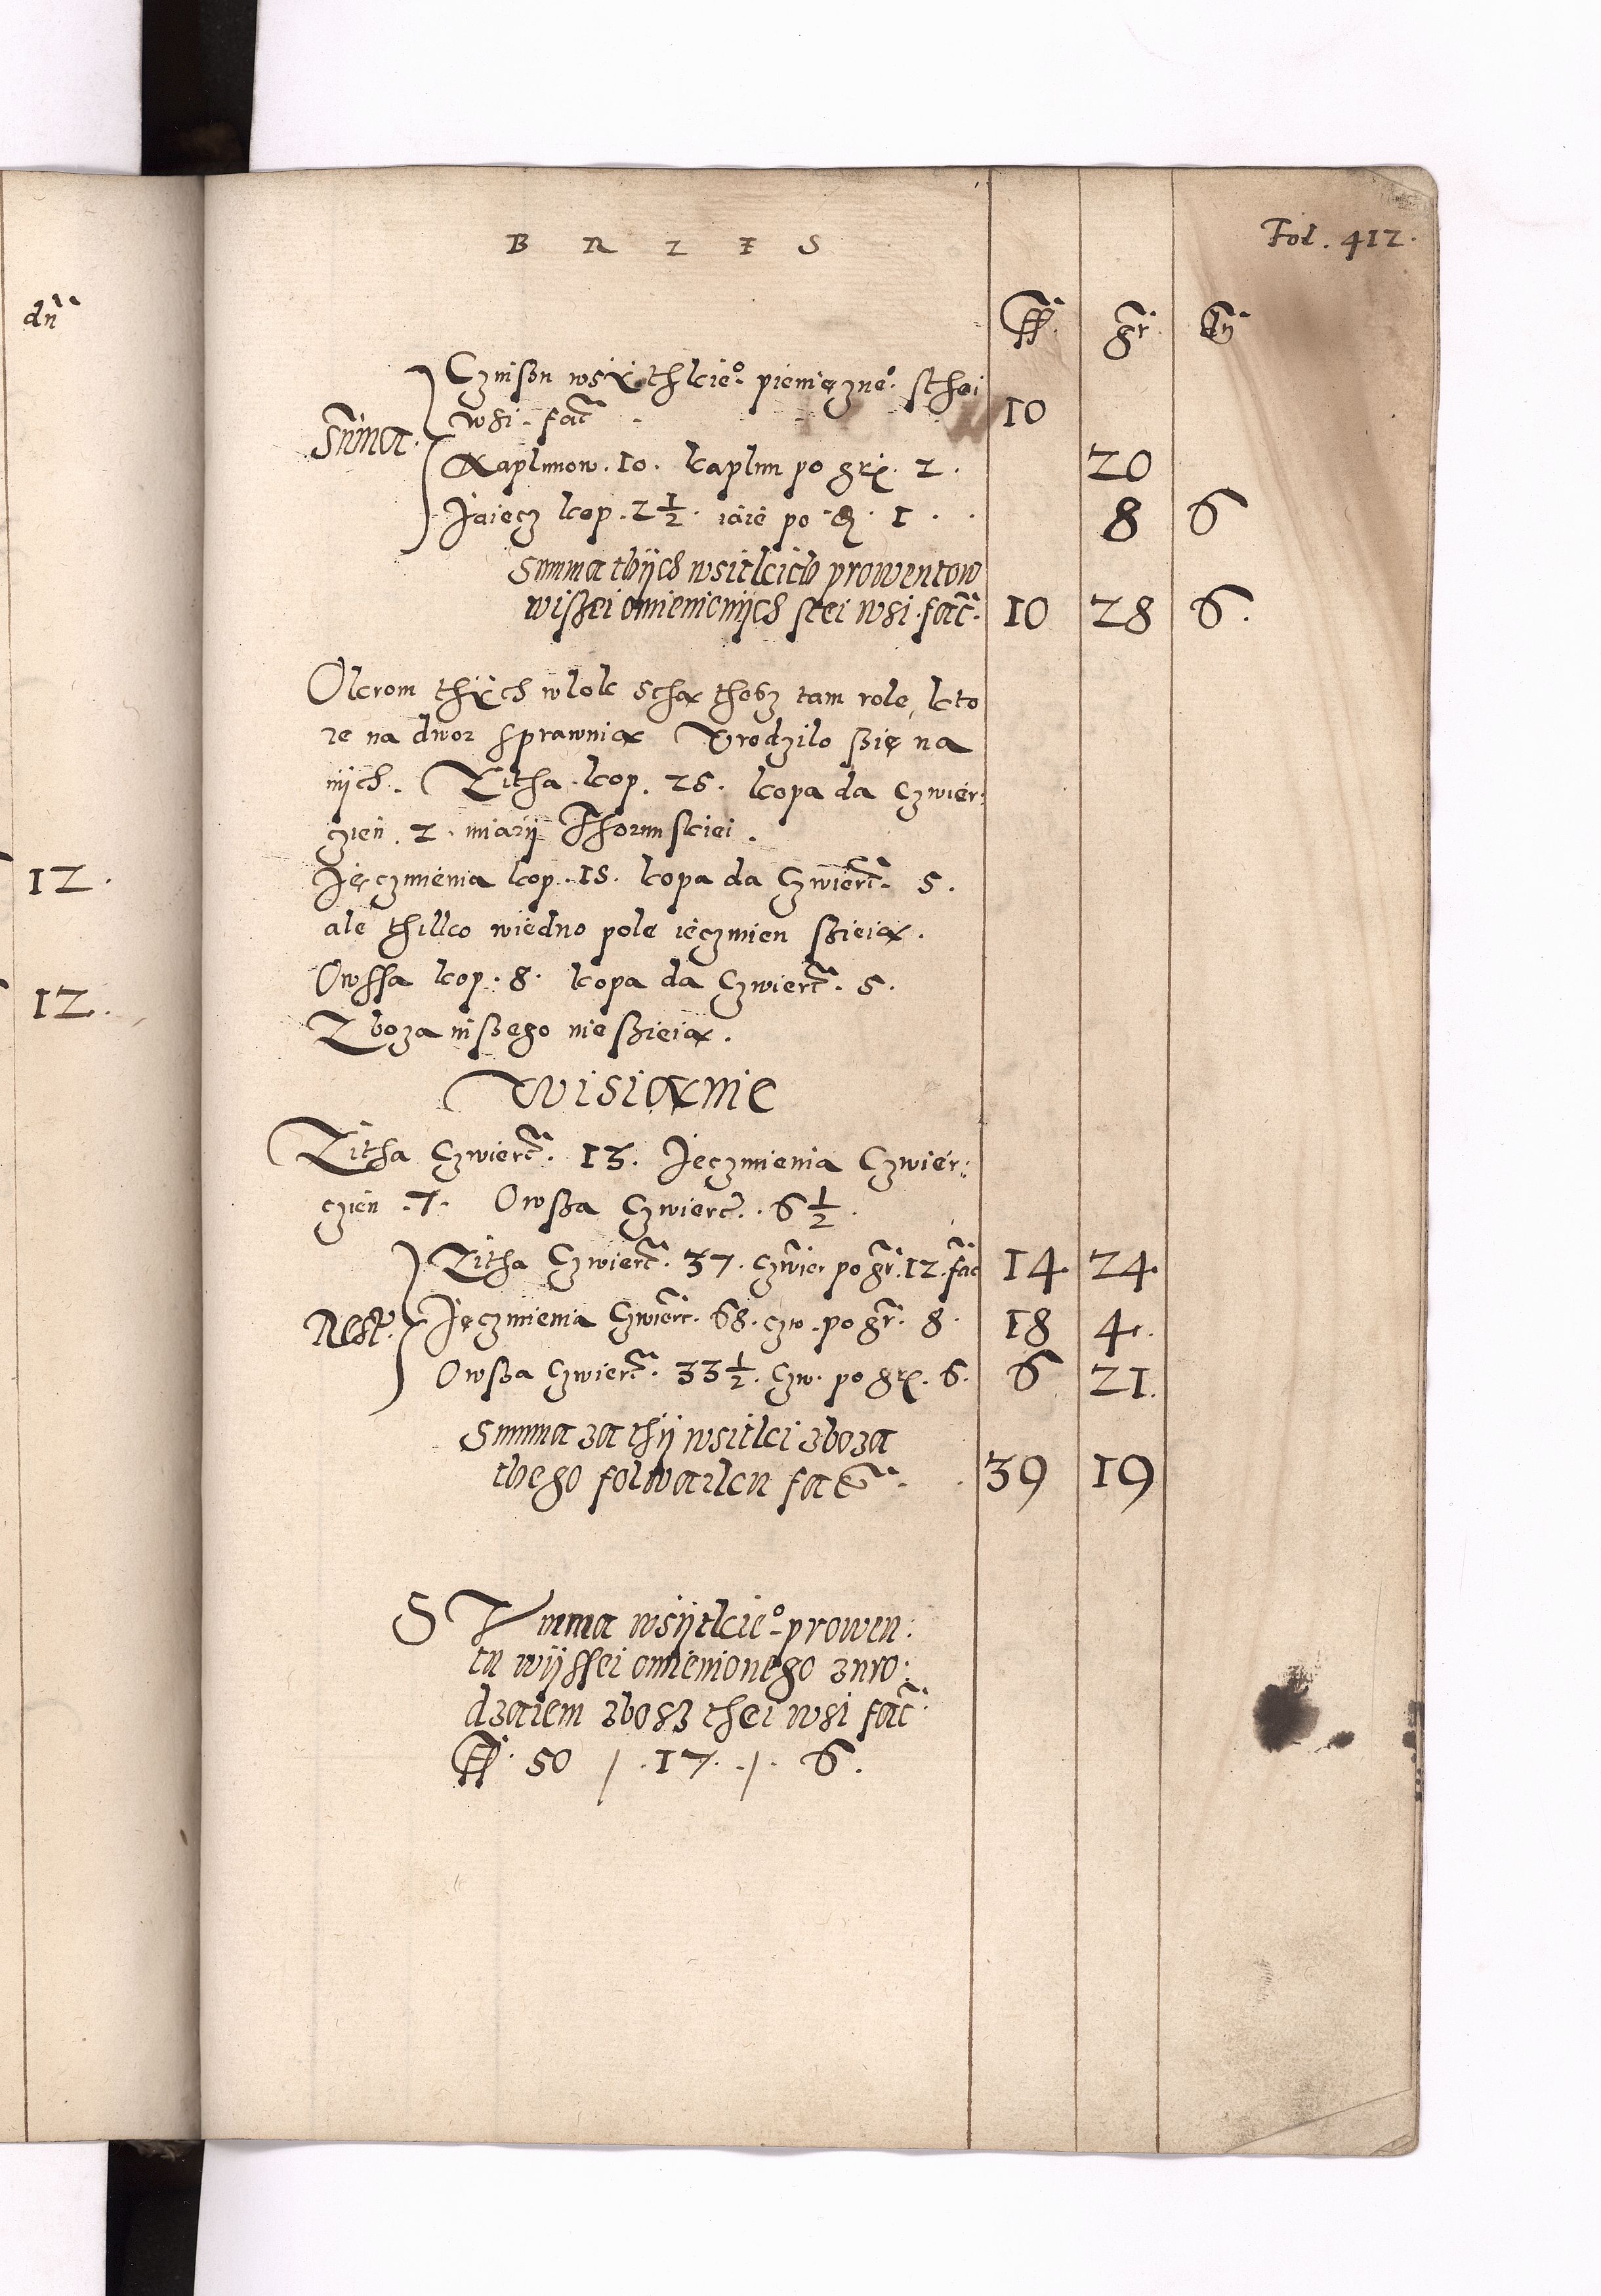 B R Z E S
Fol. 412.
dn̄
ff. gr. dn̄
Czinßow wsẏthkieͦ pienięzneͦ sthei
wsi fac̄ 10
Sūma
Kaplunow 10. kaplun po gr. 2. 20
Jaiecz kop. 2 1/2. iaie po d. 1. 8 6
Summa thijch wsitkich prowentow
wißei omienionijch stei wsi fac̄. 10 28 6.
Okrom thẏch wlok sthą thesz tam role, kto
re na dwor sprawuią Urodzilo ßię na
nijch. Zitha kop. 25. kopa da Czwier:
czien. 2. miarij Thorunskiei.
12.
Jęczmienia kop. 15. kopa da Czwierc̄. 5.
ale thilko wiedno pole ięczmien ßieią.
Owssa kop. 8. kopa da Czwierc̄. 5.
12.
Zboza inßego nie ßieią.
Wisianie
Zitha Czwierc̄. 13. Jeczmienia Czwier:
czien .7. Owßa Czwierc̄. 6 1/2.
Zitha Czwierc̄. 37. czwier po gr. 12. fac̄ 14. 24.
Rest.
Jęczmienia Czwierc̄. 68. czw. po gr. 8. 18 4.
Owßa Czwierc̄. 33 1/2. Czw. po gr. 6. 6 21.
Summa za thij wsitki zboza
thego folwarku fac̄. 39 19
SUmma wsijtkieͦ prowen:
tu wijssei omienionego z uro:
dzaiem zbosz thei wsi fac̄
ff. 50 / . 17. /. 6.